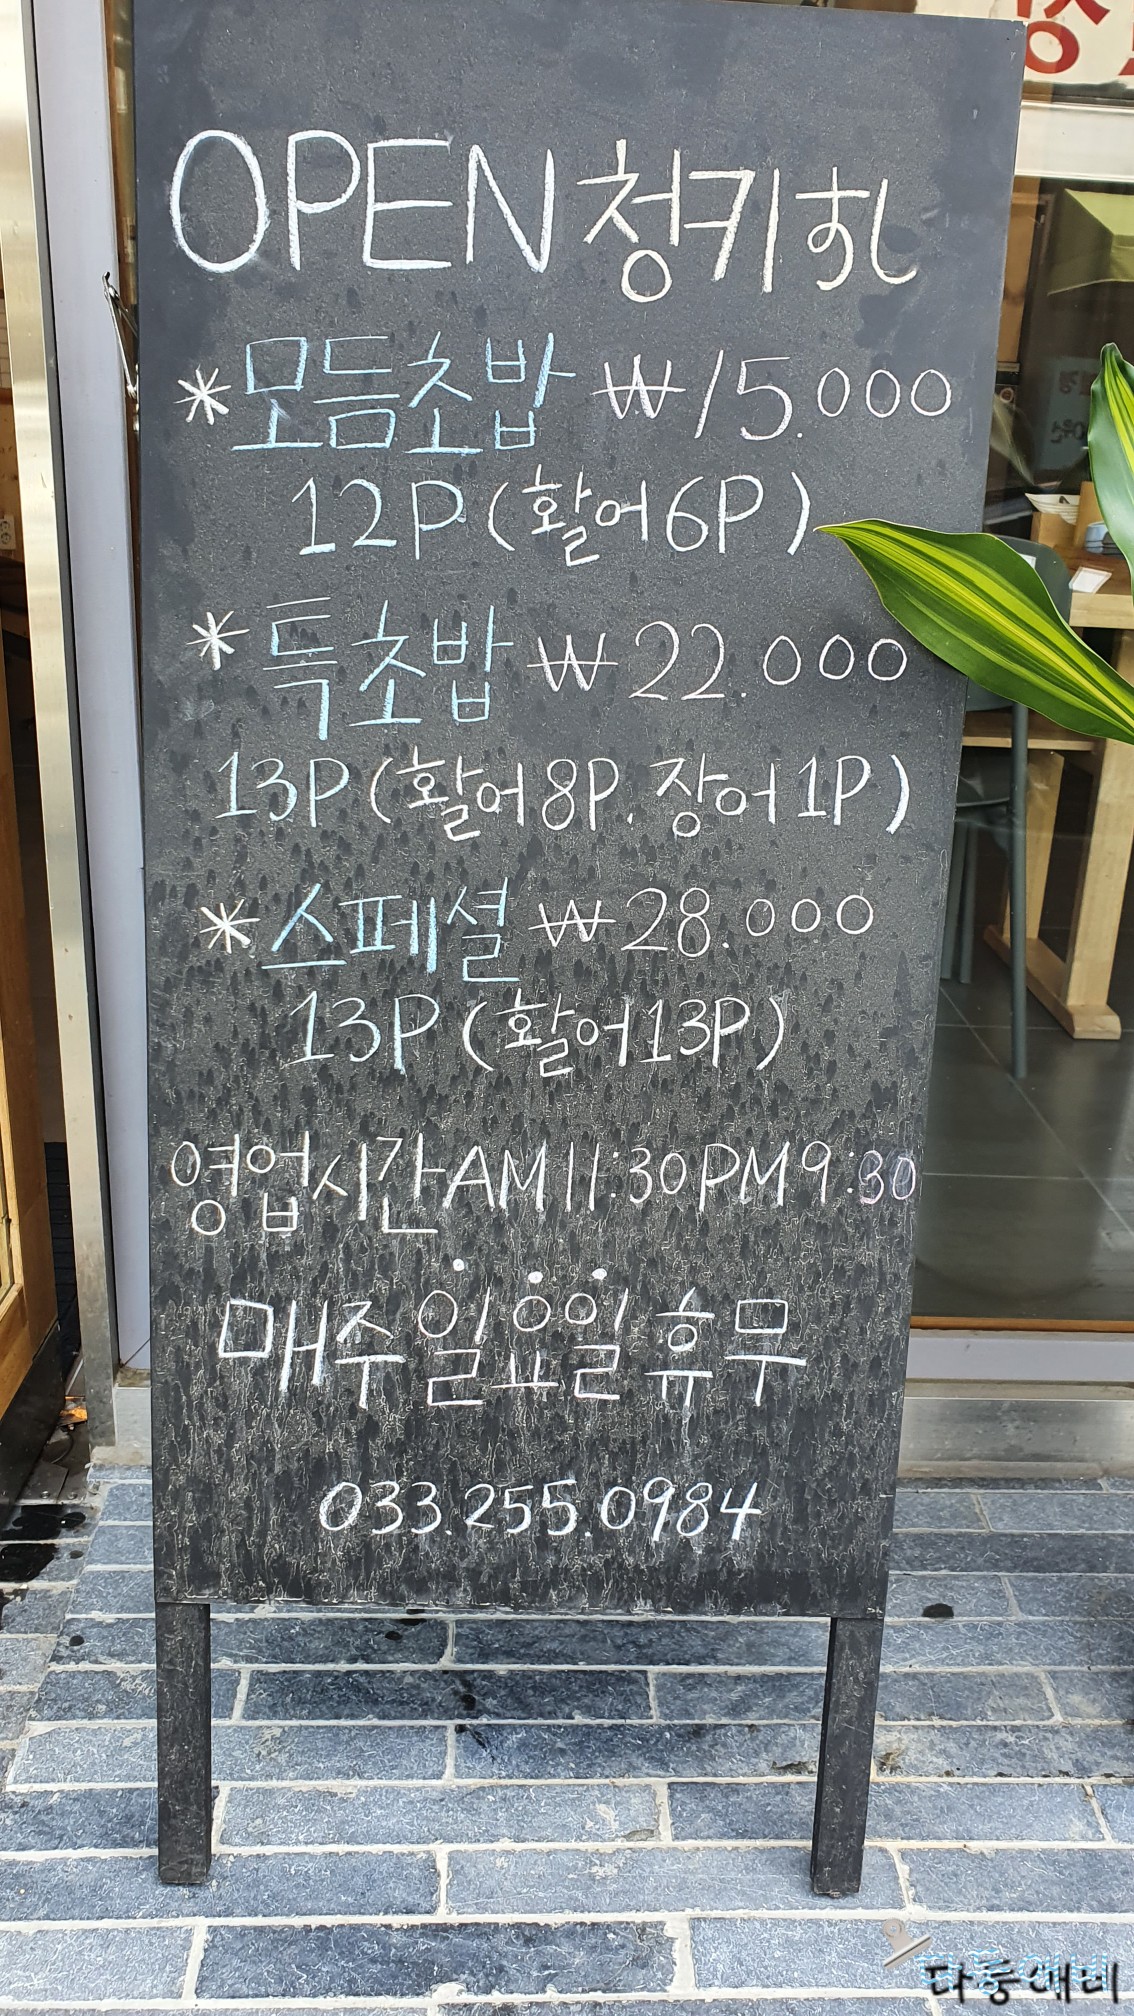 OPEN 청키힌
*모듬초밥 ₩15.000
12P (활어6P)
*특초밥 ₩22.000
13P (활어8P. 장어1P)
*스페셜 ₩28.000
13P (활어13P)
영업시간AM11:30PM9:30
매주 일요일 휴무
033.255.0984
다둥애비